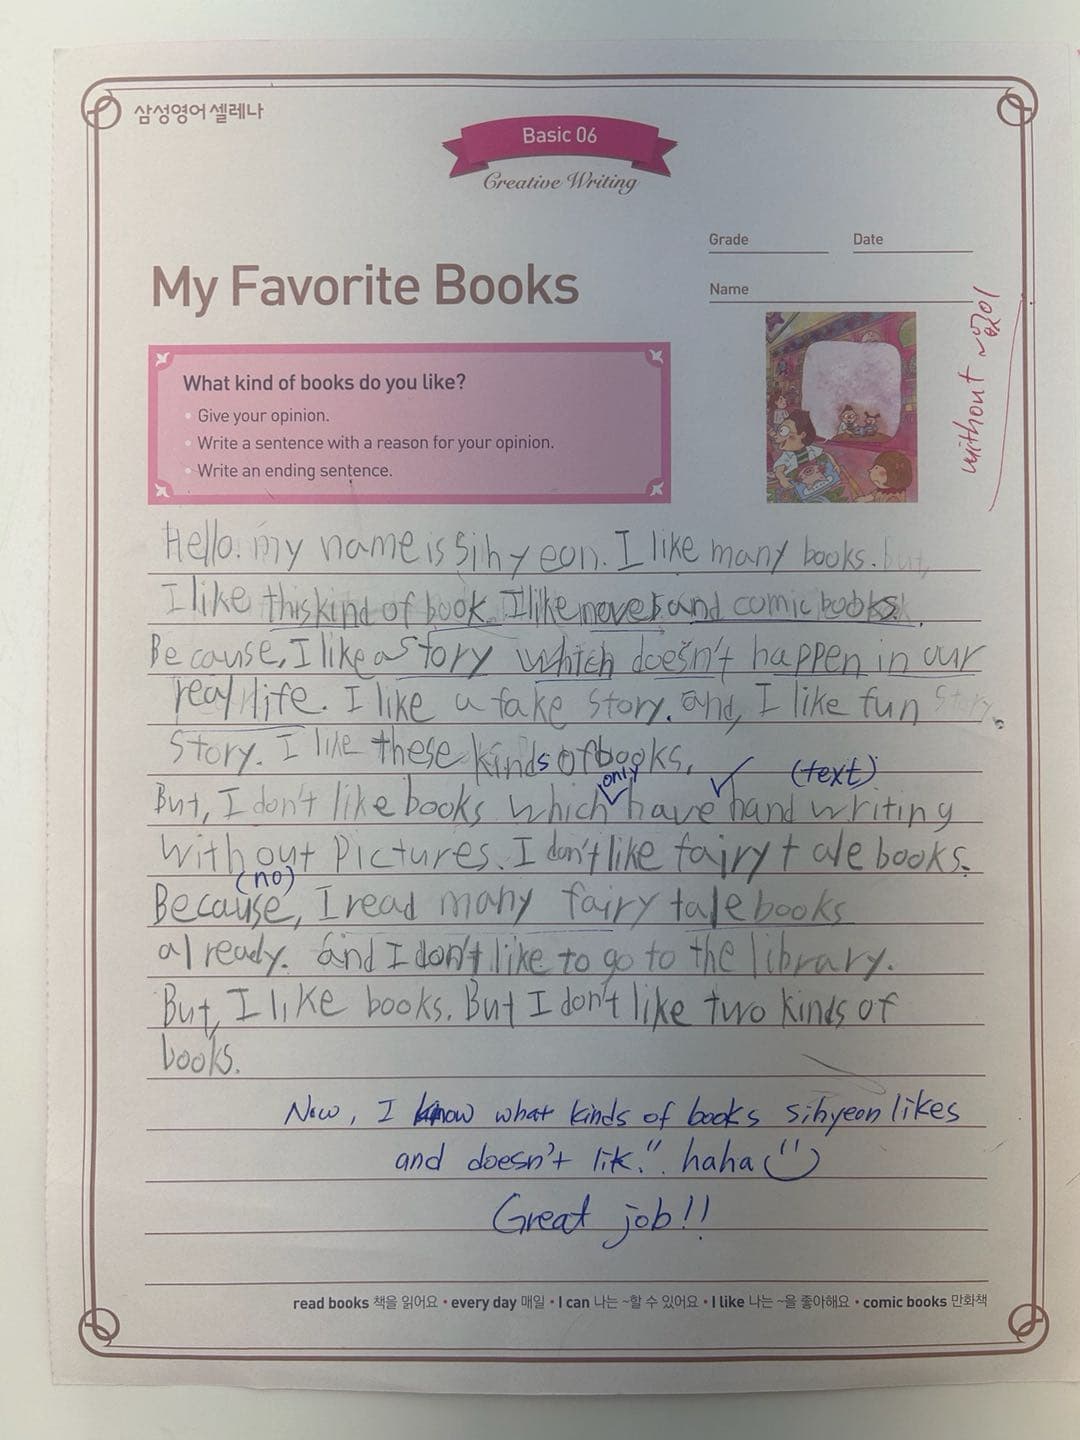 삼성영어 셀레나
Basic 06
Creative Writing
Grade
Date
Name
My Favorite Books
without ~없이
What kind of books do you like?
• Give your opinion.
• Write a sentence with a reason for your opinion.
• Write an ending sentence.
Hello. my name is Sihyeon. I like many books. but,
I like this kind of book. I like novels and comic books.
Because, I like a story which doesn't happen in our
real life. I like a fake story. and, I like fun story.
story. I like these kinds of books.
only (text)
But, I don't like books which have hand writing
without pictures. I don't like fairy tale books.
(no)
Because, I read many fairy tale books
already. and I don't like to go to the library.
But, I like books. But I don't like two kinds of
books.
Now, I know what kinds of books sihyeon likes
and doesn't lik.". haha
Great job!!
read books 책을 읽어요 • every day 매일 • I can 나는 ~할 수 있어요 • I like 나는 ~을 좋아해요 • comic books 만화책